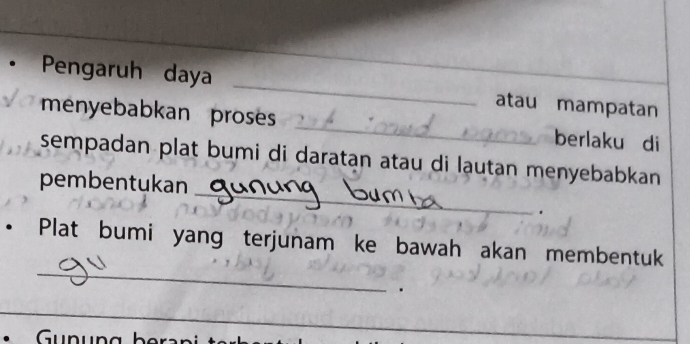 • Pengaruh daya
atau mampatan
menyebabkan proses
berlaku di
sempadan plat bumi di daratan atau di lautan menyebabkan
pembentukan gunung bumta .
• Plat bumi yang terjunam ke bawah akan membentuk
gu .
• Gunung berapi